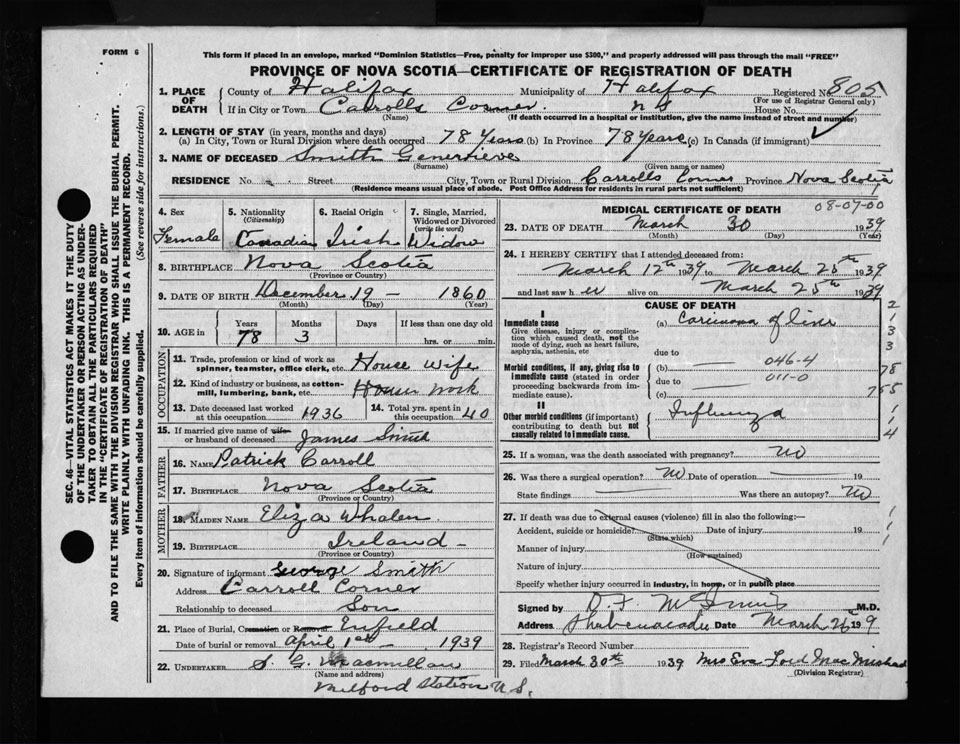 FORM 6
This form if placed in an envelope, marked "Dominion Statistics—Free, penalty for improper use $300," and properly addressed will pass through the mail "FREE"
PROVINCE OF NOVA SCOTIA—CERTIFICATE OF REGISTRATION OF DEATH
1. PLACE OF DEATH County of Halifax Municipality of Halifax Registered No. 805
(For use of Registrar General only)
If in City or Town Carrolls Corner N S House No.
(Name) (If death occurred in a hospital or institution, give the name instead of street and number)
2. LENGTH OF STAY (in years, months and days)
(a) In City, Town or Rural Division where death occurred 78 Years (b) In Province 78 Years (c) In Canada (if immigrant)
3. NAME OF DECEASED Smith Generieve
(Surname) (Given name or names)
RESIDENCE No. Street City, Town or Rural Division Carrolls Corner Province Nova Scotia
(Residence means usual place of abode. Post Office Address for residents in rural parts not sufficient)
4. Sex Female
5. Nationality (Citizenship) Canadian
6. Racial Origin Irish
7. Single, Married, Widowed or Divorced (write the word) Widow
8. BIRTHPLACE Nova Scotia
(Province or Country)
9. DATE OF BIRTH December 19 - 1860
(Month) (Day) (Year)
10. AGE in Years 78 Months 3 Days If less than one day old hrs. or min.
OCCUPATION
11. Trade, profession or kind of work as spinner, teamster, office clerk, etc. House Wife
12. Kind of industry or business, as cotton-mill, lumbering, bank, etc. House work
13. Date deceased last worked at this occupation 1936
14. Total yrs. spent in this occupation 40
15. If married give name of wife or husband of deceased James Smith
FATHER
16. NAME Patrick Carroll
17. BIRTHPLACE Nova Scotia
(Province or Country)
MOTHER
18. MAIDEN NAME Eliza Whalen
19. BIRTHPLACE Ireland -
(Province or Country)
20. Signature of informant George Smith
Address Carroll Corner
Relationship to deceased Son
21. Place of Burial, Cremation or Removal Enfield
Date of burial or removal April 1st - 1939
22. UNDERTAKER S. G. Macmillan
(Name and address)
Milford Station N.S.
MEDICAL CERTIFICATE OF DEATH 08-07-00
23. DATE OF DEATH March 30 1939
(Month) (Day) (Year)
24. I HEREBY CERTIFY that I attended deceased from:
March 12th 1939 to March 25th 1939
and last saw her alive on March 25th 1939
CAUSE OF DEATH
I
Immediate cause
Give disease, injury or complication which caused death, not the mode of dying, such as heart failure, asphyxia, asthenia, etc
(a) Carcinoma of liver
due to
Morbid conditions, if any, giving rise to immediate cause (stated in order proceeding backwards from immediate cause).
(b) 046-4
due to 011-0
(c)
II
Other morbid conditions (if important) contributing to death but not causally related to immediate cause.
Influenza
2
1
3
3
78
755
1
1
4
25. If a woman, was the death associated with pregnancy? No
26. Was there a surgical operation? No Date of operation 19
State findings Was there an autopsy? No
27. If death was due to external causes (violence) fill in also the following:—
Accident, suicide or homicide? Date of injury 19
(State which)
Manner of injury
(How sustained)
Nature of injury
Specify whether injury occurred in industry, in home, or in public place
Signed by D. F. McInnis M.D.
Address Shubenacadie Date March 26 1939
28. Registrar's Record Number
29. Filed March 30th 1939 Mrs Eva Ford Mac
(Division Registrar)
SEC. 46—VITAL STATISTICS ACT MAKES IT THE DUTY
OF THE UNDERTAKER OR PERSON ACTING AS UNDER-
TAKER TO OBTAIN ALL THE PARTICULARS REQUIRED
IN THE "CERTIFICATE OF REGISTRATION OF DEATH"
AND TO FILE THE SAME WITH THE DIVISION REGISTRAR WHO SHALL ISSUE THE BURIAL PERMIT.
WRITE PLAINLY WITH UNFADING INK. THIS IS A PERMANENT RECORD.
Every item of information should be carefully supplied. (See reverse side for instructions.)